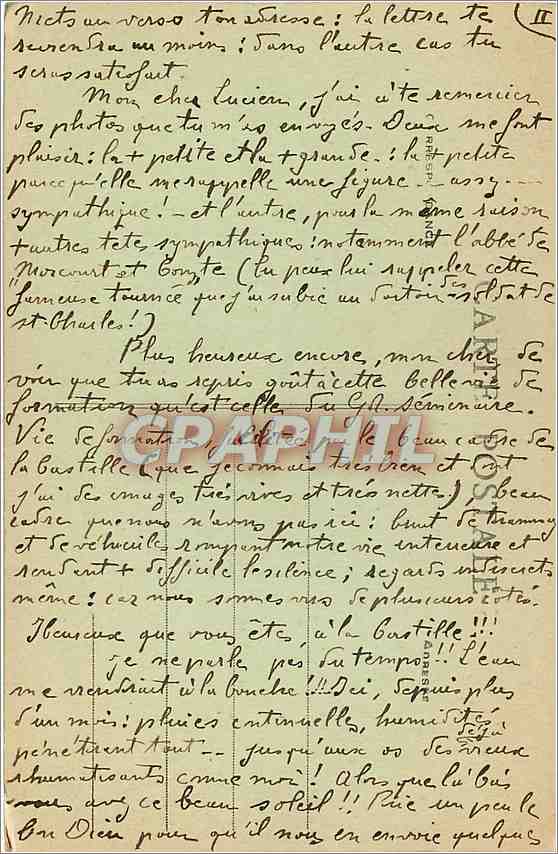 II
Mets au verso ton adresse : la lettre te
reviendra au moins : dans l'autre cas tu
seras satisfait.
Mon cher Lucien, j'ai à te remercier
des photos que tu m'as envoyés. Deux me font
plaisir : la + petite et la + grande. : la + petite
parce qu'elle me rappelle une figure assez
sympathique ! - et l'autre, pour la même raison
+ autres têtes sympathiques : notamment l'abbé de
et (tu peux lui rappeler cette
"fameuse tournée que j'ai subie au dortoir des soldat de
St Charles !)
Plus heureux encore, mon cher de
voir que tu as repris goût à cette belle vie de
formation qu'est celle du Gd. séminaire.
Vie de formation, par le beau cadre de
la Bastille (que je connais très bien et dont
j'ai des images très vives et très nettes) beau
cadre que nous n'avons pas ici : bruit de tramway
et de véhicules rompant notre vie intérieure et
rendant + difficile le silence ; regards indiscrets
même : car nous sommes vus de plusieurs côtés.
Heureux que vous êtes, à la Bastille !!!
Je ne parle pas du temps !! L'eau
me viendrait à la bouche !!!! Ici, depuis plus
d'un mois : pluies continuelles, humidités,
pénétrant tout -- jusqu'aux os des déjà vieux
rhumatisants comme moi ! Alors que là-bas
vous avez ce beau soleil !! Prie un peu le
bon Dieu pour qu'il nous en envoie quelques
CARTE POSTALE
CORRESPONDANCE
ADRESSE
CPAPHIL